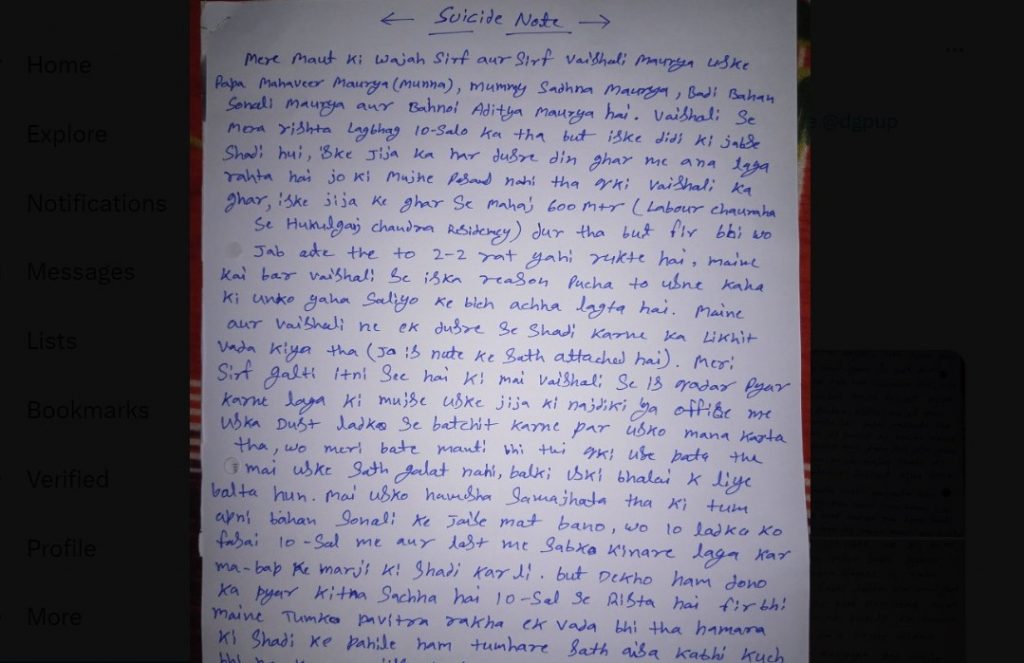 Home
Explore
Notifications
Messages
Lists
Bookmarks
Verified
Profile
More
@dgpup
← Suicide Note →
Mere Maut Ki Wajah Sirf aur Sirf Vaishali Maurya uske
Papa Mahaveer Maurya (Munna), mummy Sadhna Maurya, Badi Bahan
Sonali Maurya aur Bahnoi Aditya Maurya hai. Vaishali Se
mera rishta Lagbhag 10-Salo ka tha but iske didi ki jabse
Shadi hui, iske Jija ka har dusre din ghar me ana laga
rahta hai jo ki Mujhe Pasand nahi tha qki Vaishali ka
ghar, iske jija ke ghar Se Mahaj 600 mtr (Labour chauraha
Se Hukulganj chandra Residency) dur tha but fir bhi wo
Jab ate the to 2-2 rat yahi rukte hai, maine
kai bar vaishali Se iska reason Pucha to usne kaha
ki unko yaha Saliyo ke bich achha lagta hai. Maine
aur Vaishali ne ek dusre Se Shadi karne ka Likhit
vada kiya tha (Jo is note ke Sath attached hai). Meri
Sirf galti itni See hai ki mai Vaishali Se is qadar Pyar
karne laga ki mujse uske jija ki najdiki ya office me
uska Dust ladko Se batchit karne par usko mana karta
tha, wo meri bate manti bhi thi qki use pata tha
mai uske Sath galat nahi, balki uski bhalai k liye
bolta hun. Mai usko hamesha Samajhata tha ki tum
apni bahan Sonali ke Jaise mat bano, wo 10 ladka ko
fasai 10-Sal me aur last me Sabko kinare laga kar
ma-bap ke marji ki Shadi kar li. but Dekho ham dono
ka pyar kitna Sachha hai 10-Sal Se Rista hai fir bhi
maine Tumko pavitra rakha ek vada bhi tha hamara
ki Shadi ke pahile ham tumhare Sath aisa kabhi kuch